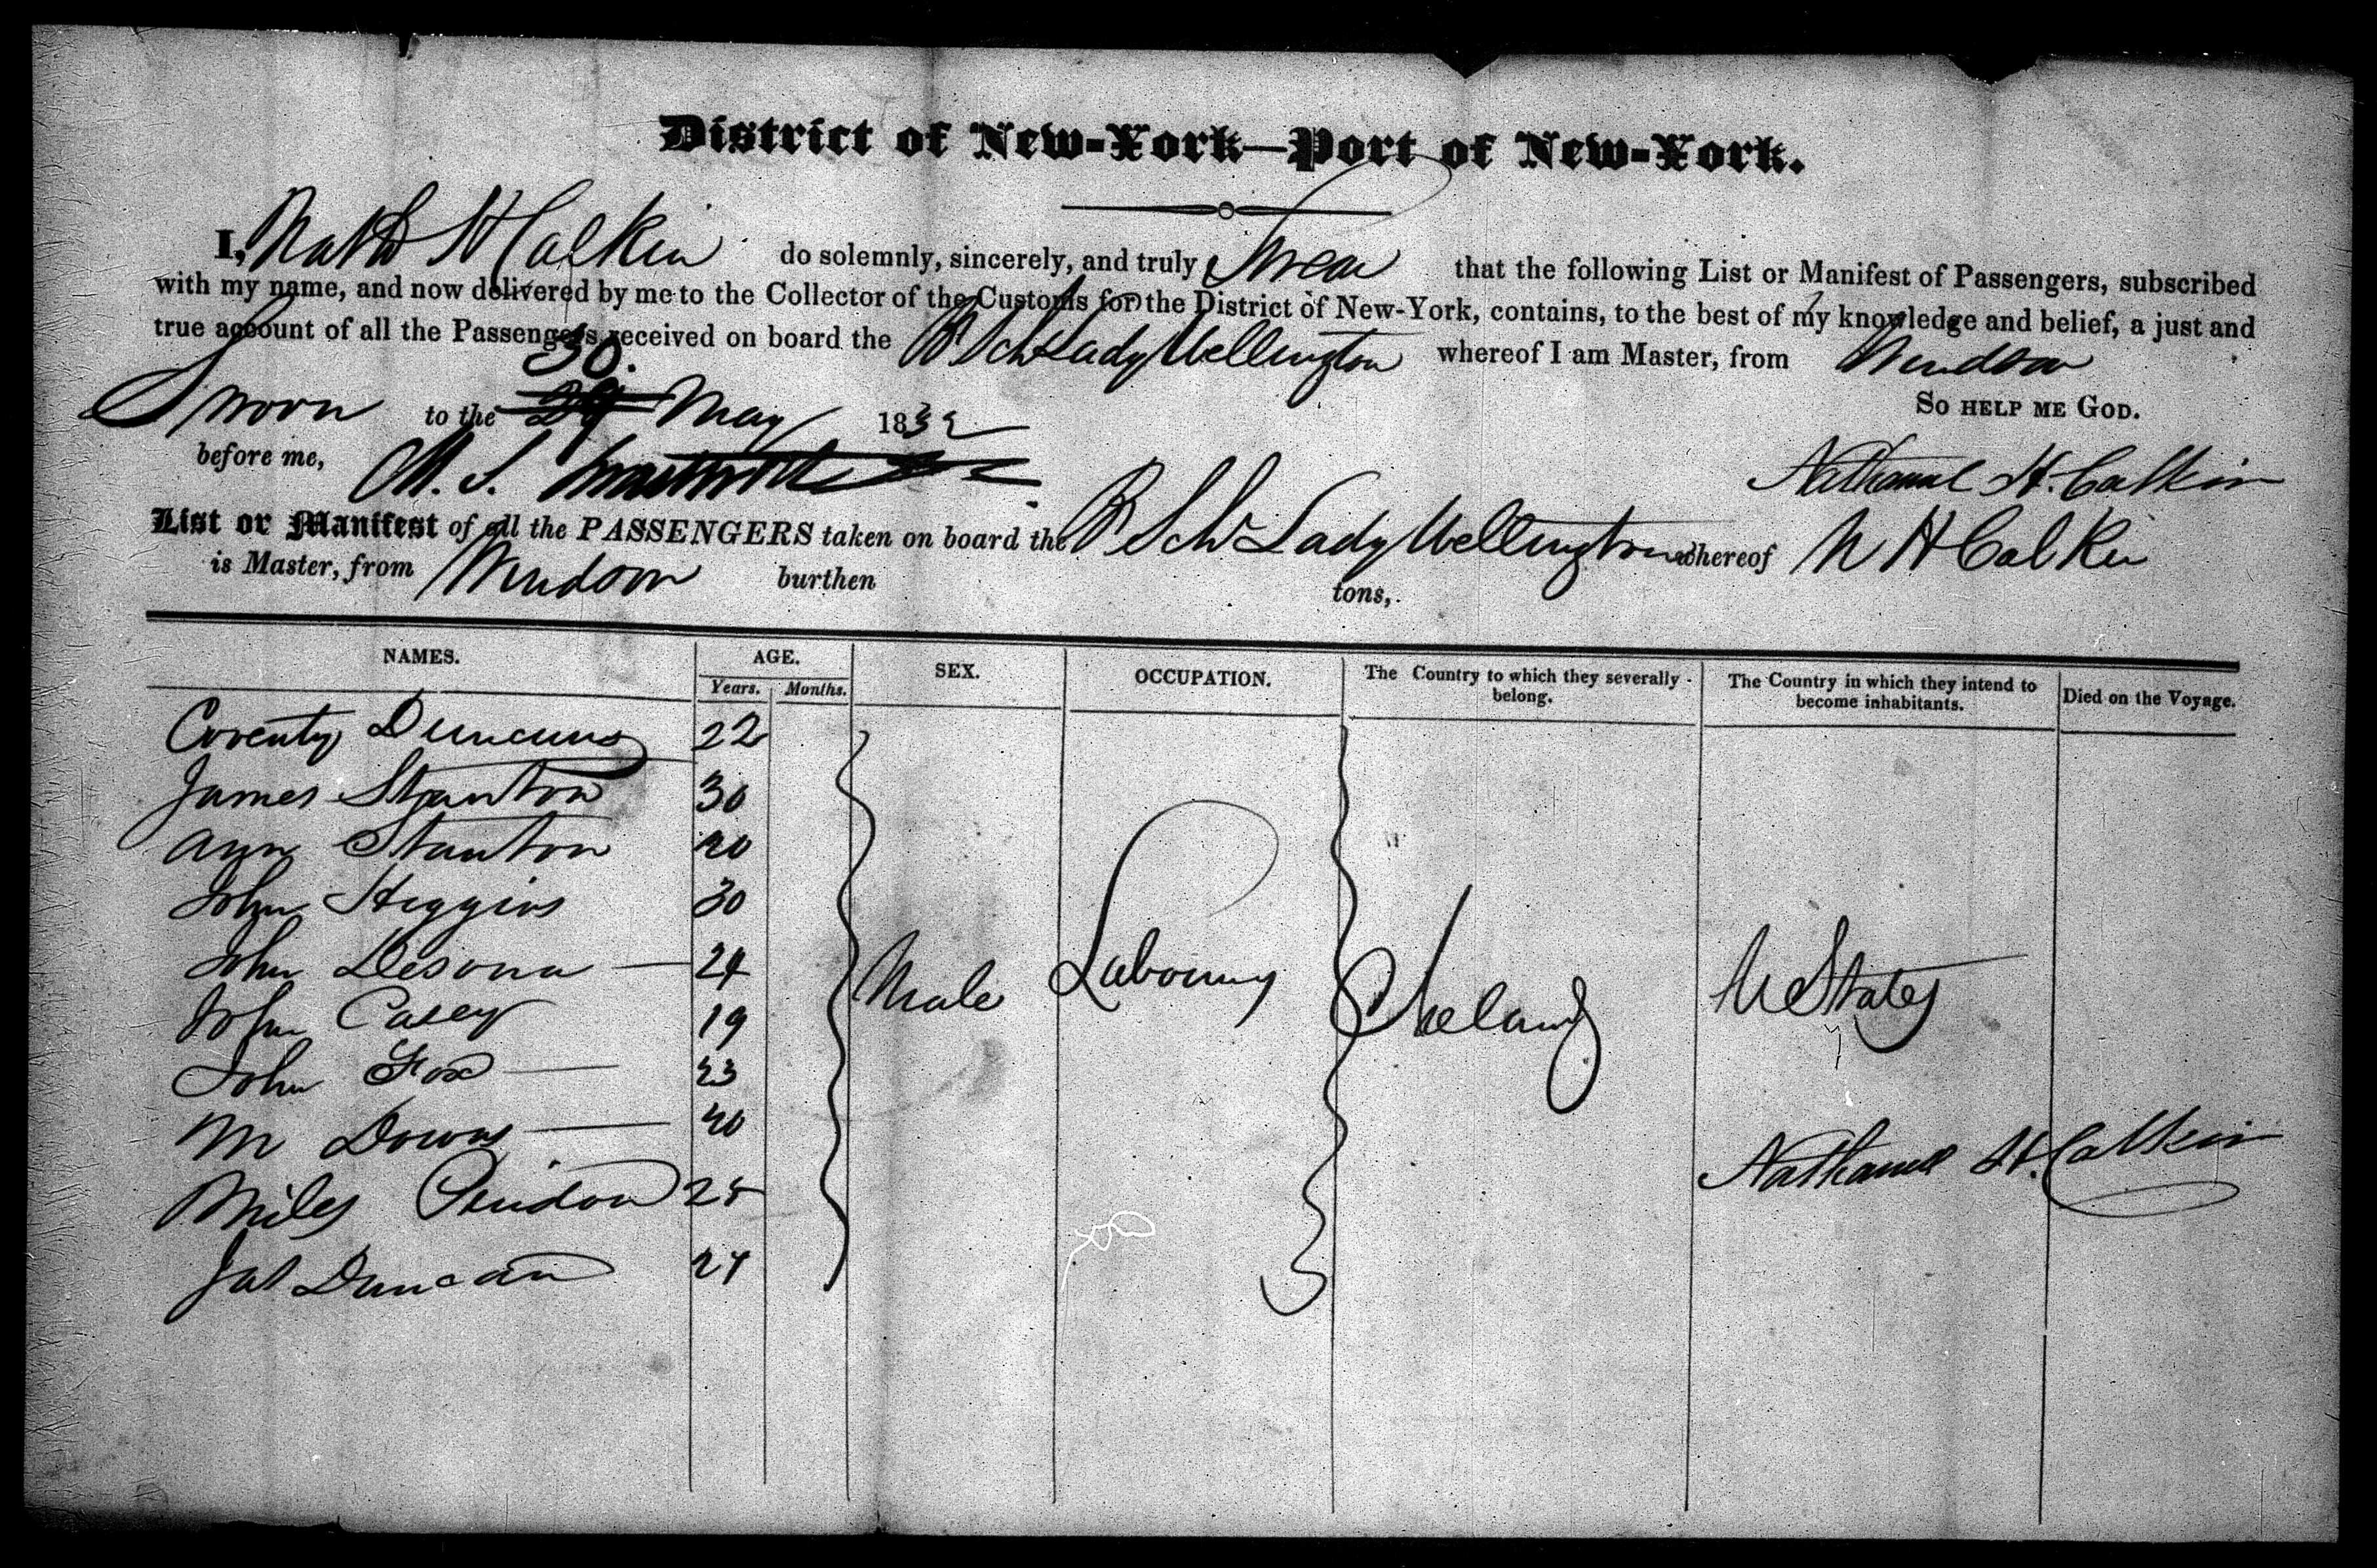 District of New-York—Port of New-York.
I, Nathl H Calkin do solemnly, sincerely, and truly Swear that the following List or Manifest of Passengers, subscribed
with my name, and now delivered by me to the Collector of the Customs for the District of New-York, contains, to the best of my knowledge and belief, a just and
true account of all the Passengers received on board the B Schr Lady Wellington whereof I am Master, from Windsor
So help me God.
30.
Sworn to the 29 May 1832
before me, M. S.
Nathaniel H. Calkin
List or Manifest of all the PASSENGERS taken on board the B Schr Lady Wellington whereof N H Calkin
is Master, from Windsor burthen tons,
NAMES. AGE. SEX. OCCUPATION. The Country to which they severally belong. The Country in which they intend to become inhabitants. Died on the Voyage.
Years. Months.
Coventy 22
James Stanton 30
Ann Stanton 20
John Higgins 30
John 24
John Casey 19
John Fox 23
M Downs 20
Miles 25
Jas Duncan 27
Male Ireland U States
Nathaniel H. Calkin